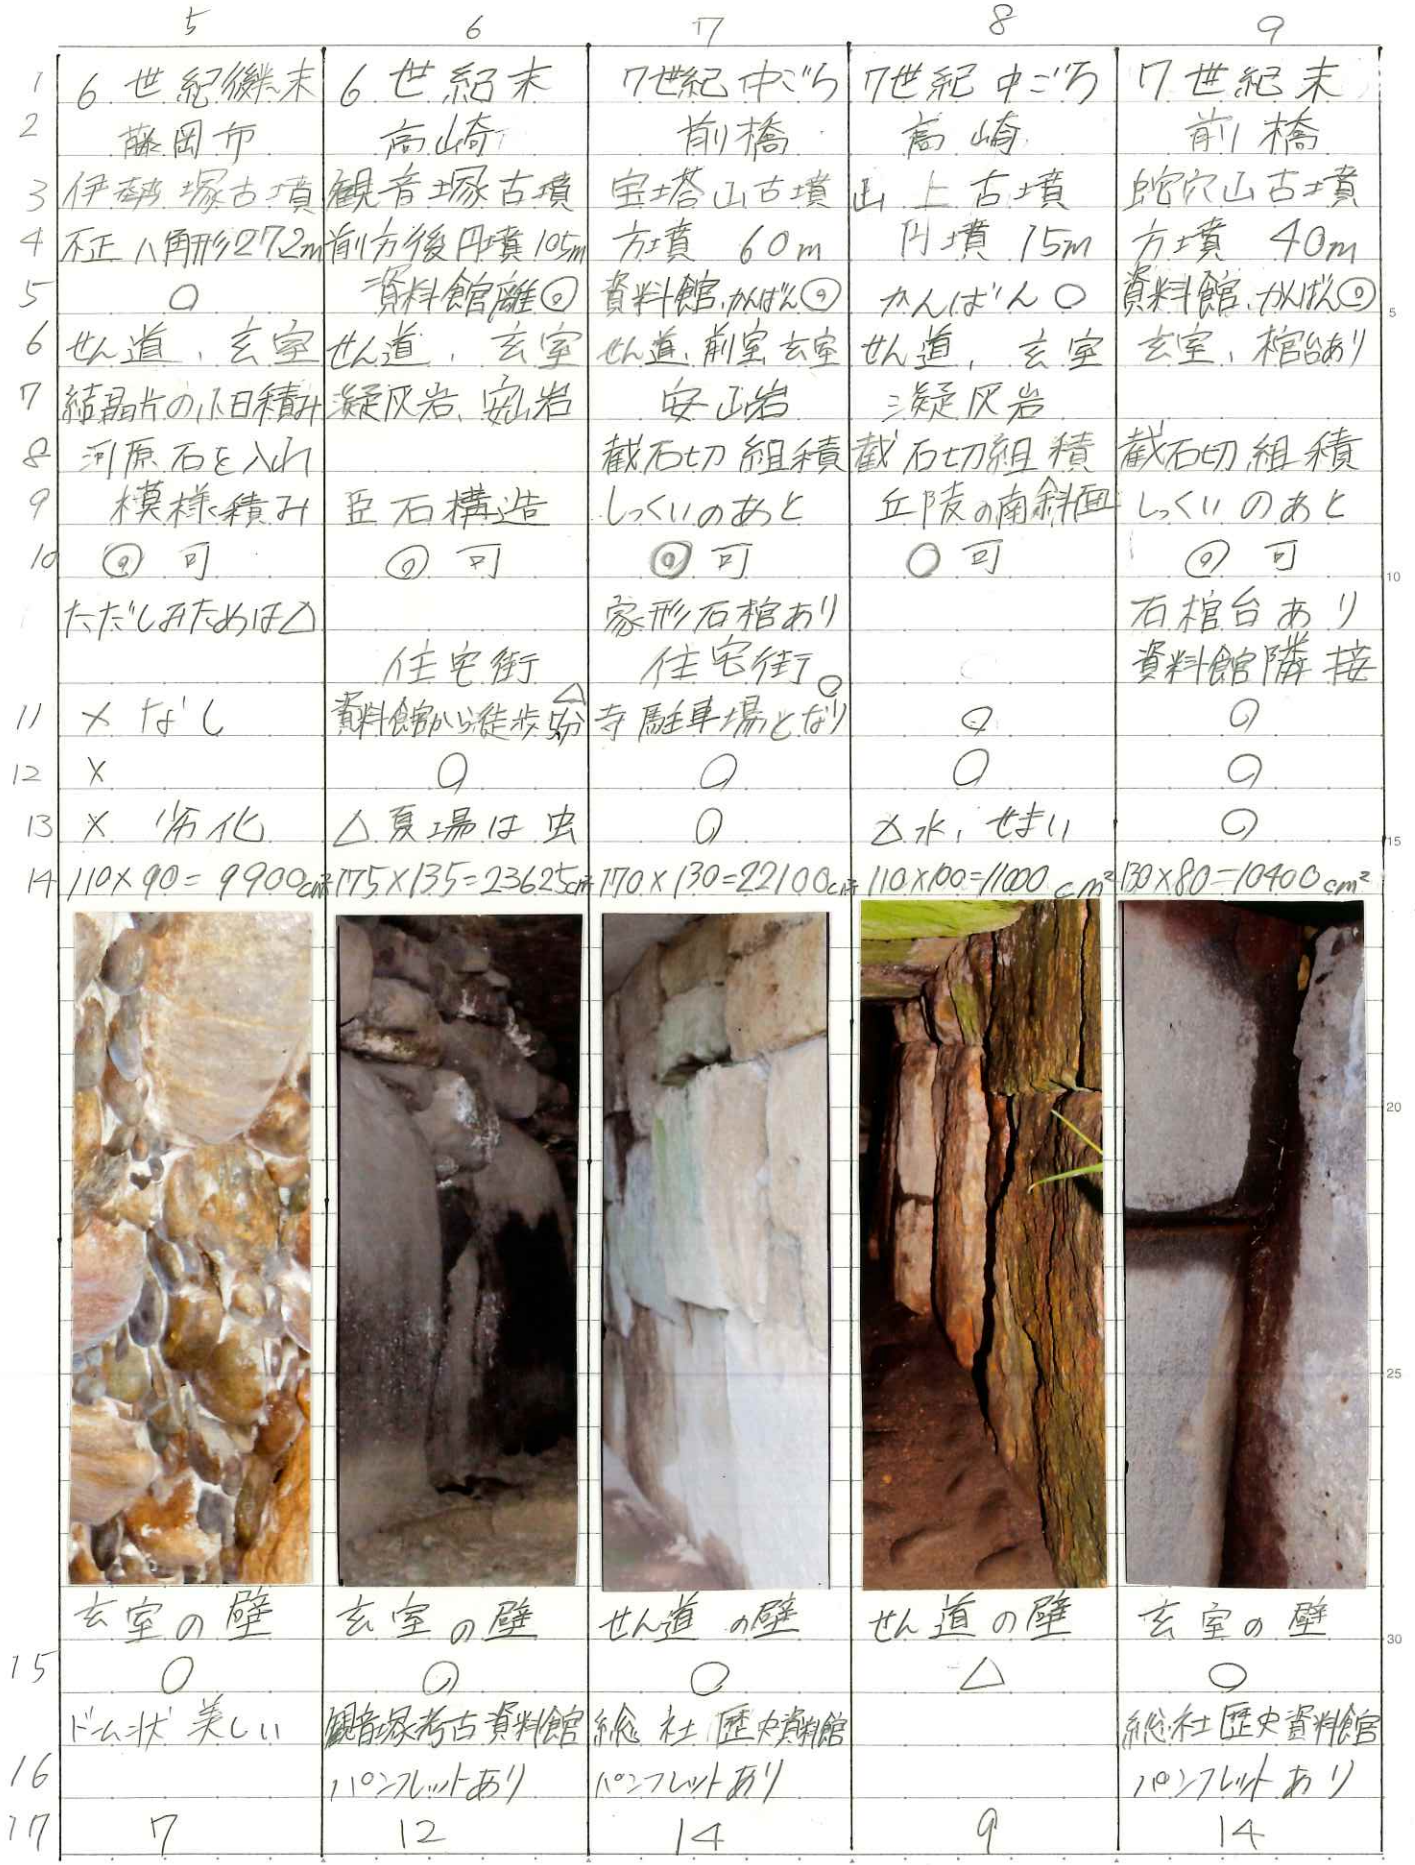 5 6 7 8 9
1 6世紀後末 6世紀末 7世紀中ごろ 7世紀中ごろ 7世紀末
2 藤岡市 高崎 前橋 高崎 前橋
3 伊勢塚古墳 観音塚古墳 宝塔山古墳 山上古墳 蛇穴山古墳
4 不正八角形27.2m 前方後円墳105m 方墳 60m 円墳 15m 方墳 40m
5 ○ 資料館離◎ 資料館、かんばん◎ かんばん○ 資料館、かんばん◎ 5
6 せん道、玄室 せん道、玄室 せん道、前室玄室 せん道、玄室 玄室、棺台あり
7 結晶片の小口積み 凝灰岩、安山岩 安山岩 凝灰岩
8 河原石を入れ 截石切組積 截石切組積 截石切組積
9 模様積み 臣石構造 しっくいのあと 丘陵の南斜面 しっくいのあと
10 ◎ 可 ◎ 可 ◎ 可 ○ 可 ◎ 可 10
ただしみためは△ 家形石棺あり 石棺台あり
住宅街 住宅街 資料館隣接
11 ×なし 資料館から徒歩5分△ 寺駐車場となり○ ○ ○
12 × ○ ○ ○ ○
13 × 劣化 △夏場は虫 ○ △水、せまい ○ 15
14 110×90=9900cm² 175×135=23625cm² 170×130=22100cm² 110×100=11000cm² 130×80=10400cm²
20
25
玄室の壁 玄室の壁 せん道の壁 せん道の壁 玄室の壁 30
15 ○ ○ ○ △ ○
ドーム状 美しい 観音塚考古資料館 総社歴史資料館 総社歴史資料館
16 パンフレットあり パンフレットあり パンフレットあり
17 7 12 14 9 14